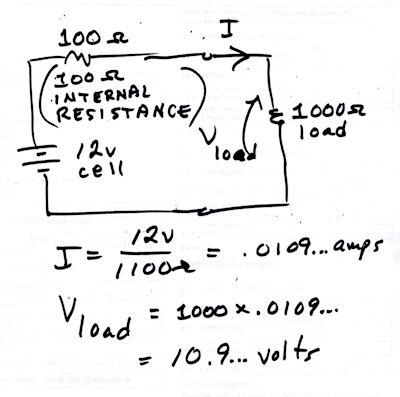 I
100Ω
(100Ω
INTERNAL
RESISTANCE)
Vload
1000Ω
load
12v
cell
I = 12v / 1100Ω = .0109... amps
Vload = 1000 x .0109...
= 10.9... volts